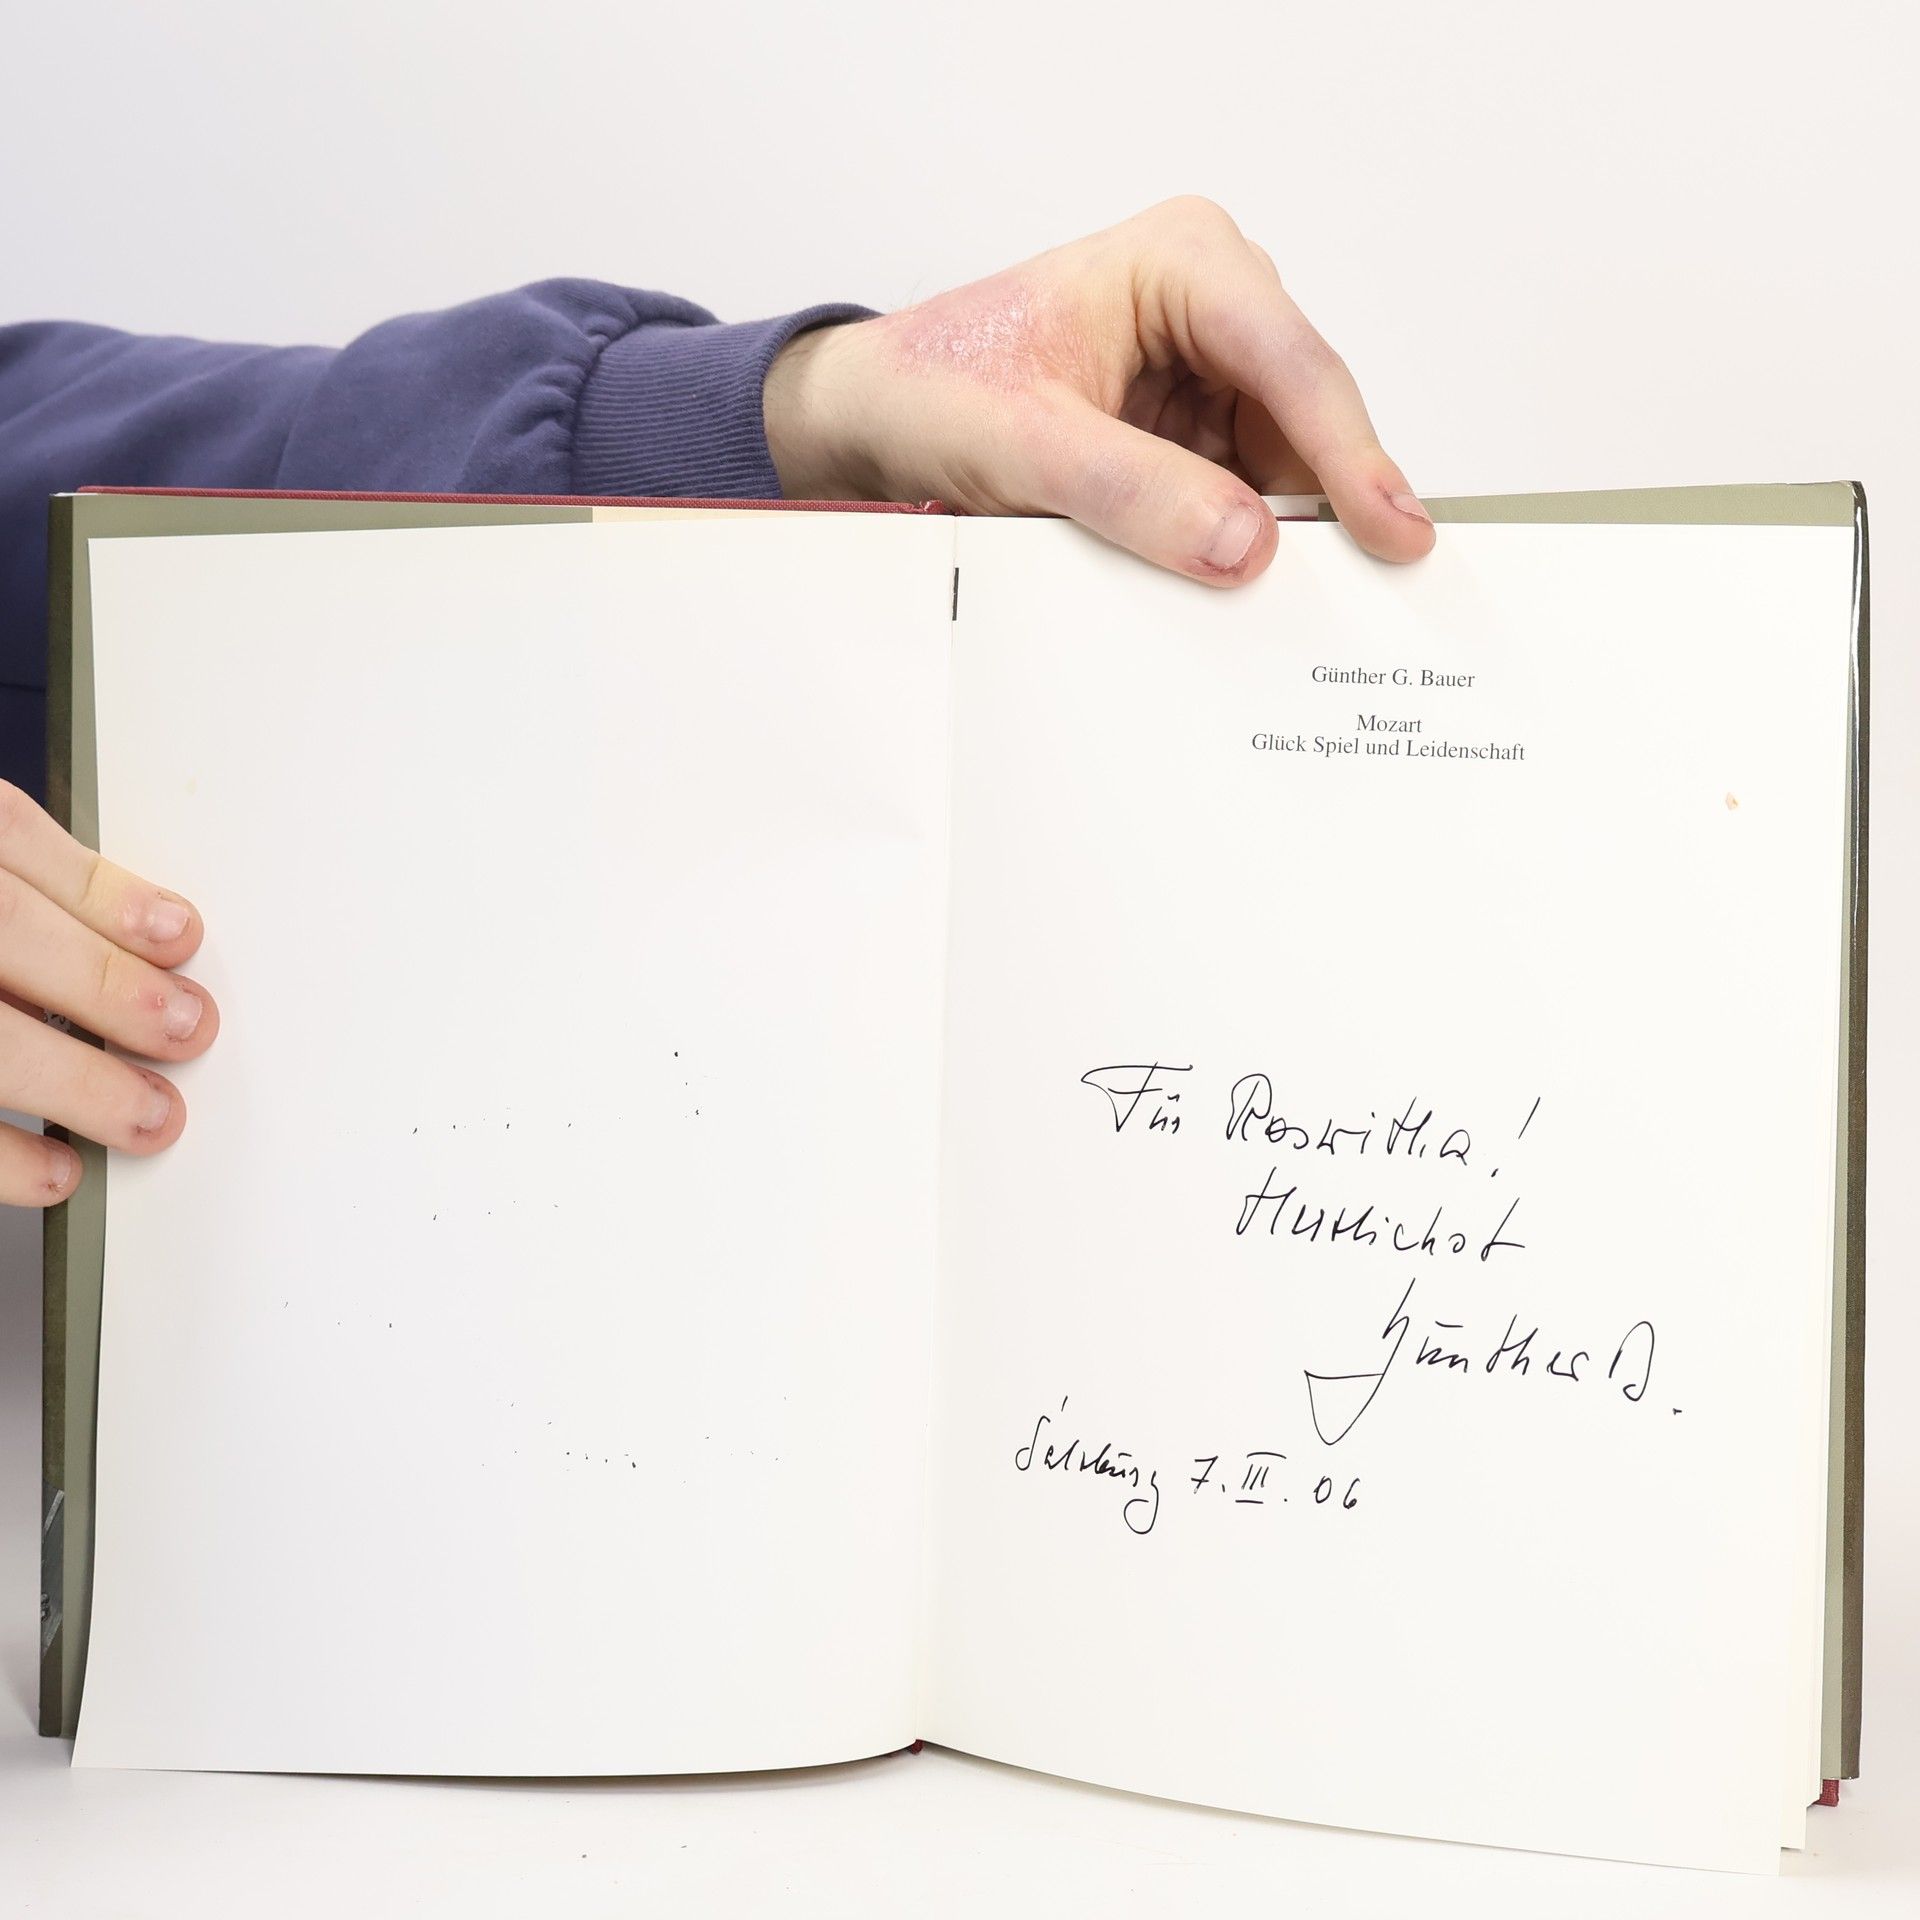 Günther G. Bauer
Mozart
Glück Spiel und Leidenschaft
Für Roswitha!
Herzlichst
Günther B.
Salzburg 7. III. 06